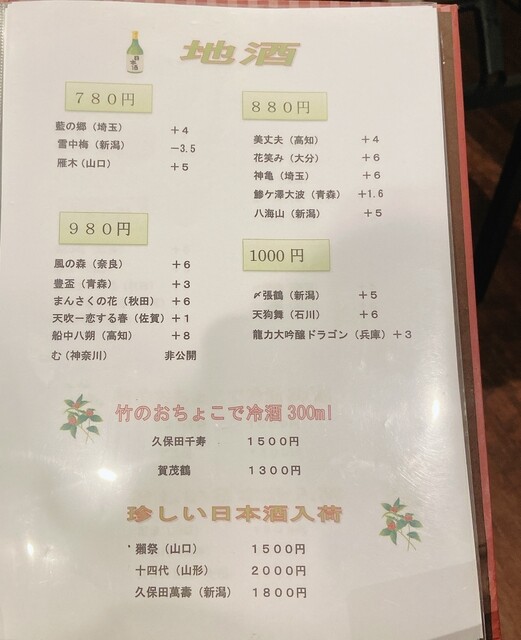 地酒
780円
藍の郷（埼玉） +4
雪中梅（新潟） −3.5
雁木（山口） +5
880円
美丈夫（高知） +4
花笑み（大分） +6
神亀（埼玉） +6
鰺ケ澤大波（青森） +1.6
八海山（新潟） +5
980円
風の森（奈良） +6
豊盃（青森） +3
まんさくの花（秋田） +6
天吹ー恋する春（佐賀）+1
船中八朔（高知） +8
む（神奈川） 非公開
1000円
〆張鶴（新潟） +5
天狗舞（石川） +6
龍力大吟醸ドラゴン（兵庫）+3
竹のおちょこで冷酒300ml
久保田千寿 1500円
賀茂鶴 1300円
珍しい日本酒入荷
・獺祭（山口） 1500円
十四代（山形） 2000円
久保田萬壽（新潟） 1800円